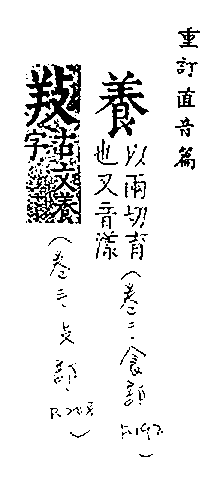 重訂直音篇
養
以兩切育
也又音漾
(卷二·食部
P.142)
𢼝
古文養
字
(卷三·攴部
)